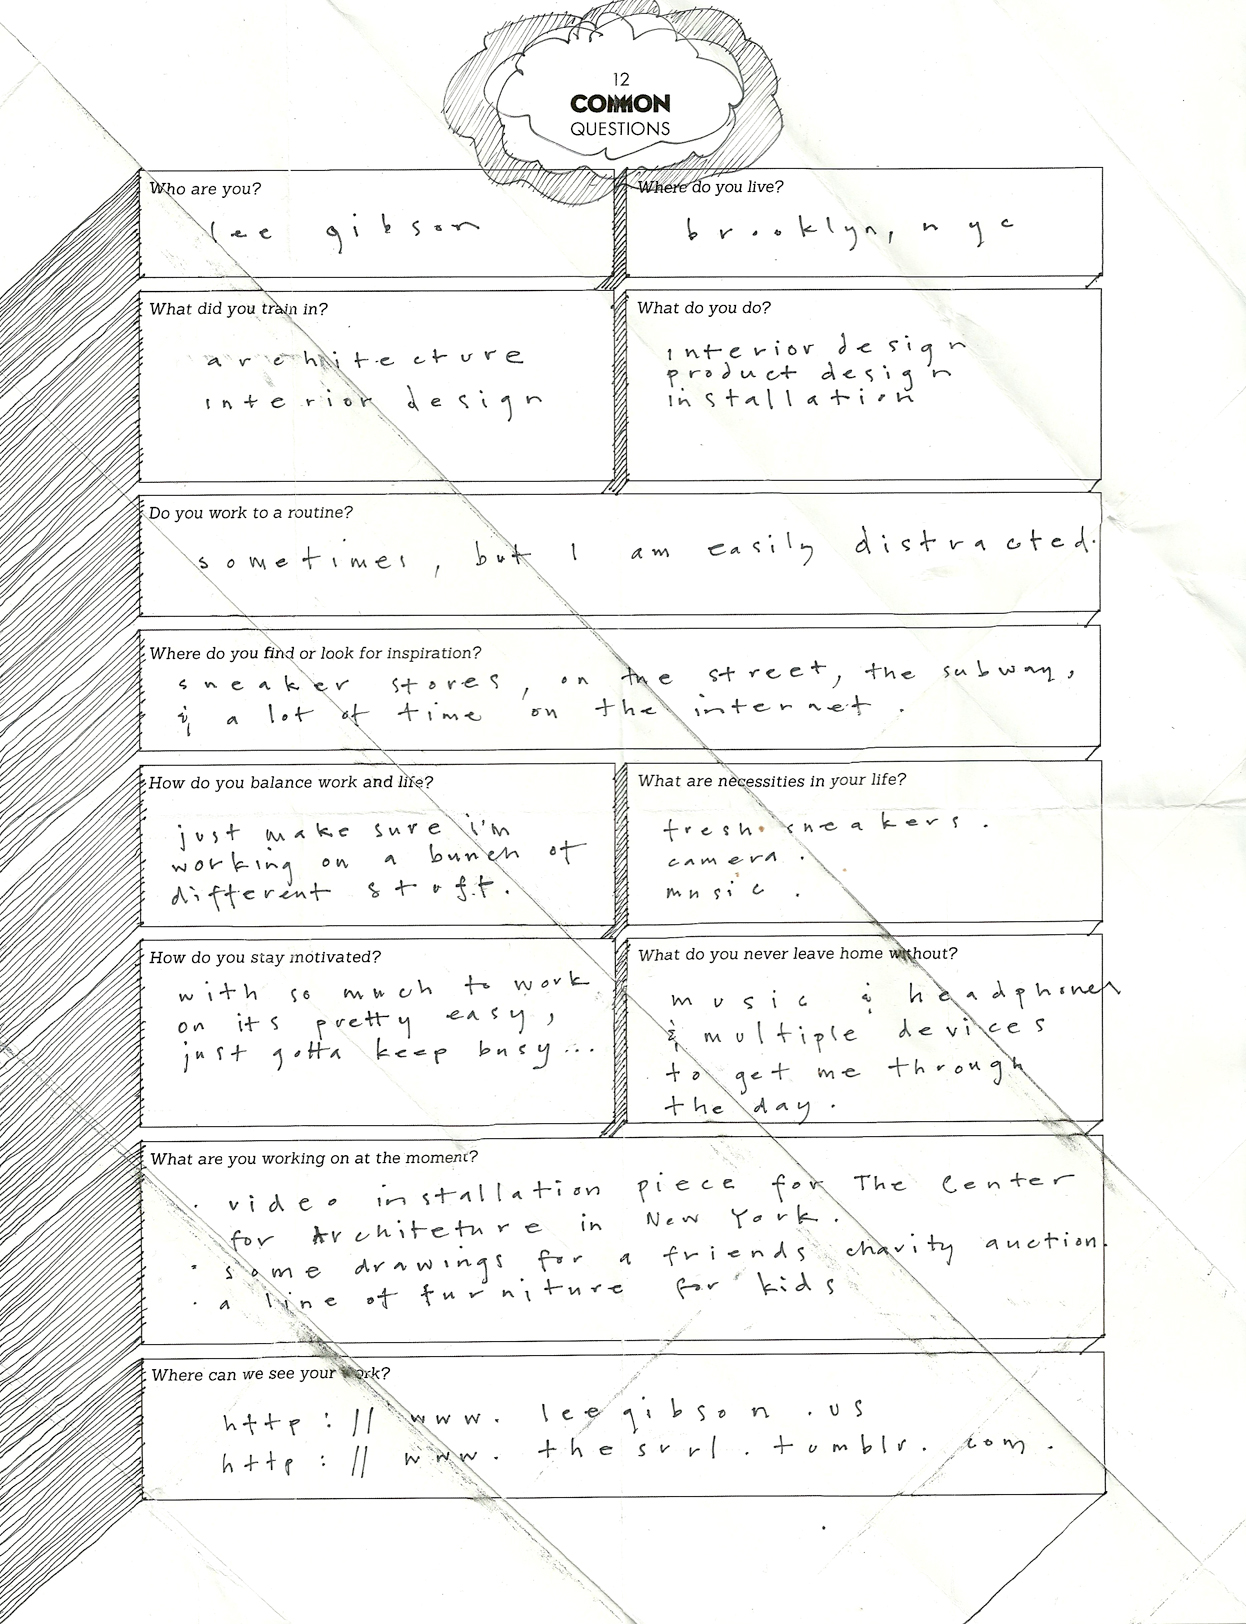 12
COMMON
QUESTIONS
Who are you?
lee gibson
Where do you live?
brooklyn, nyc
What did you train in?
architecture
interior design
What do you do?
interior design
product design
installation
Do you work to a routine?
sometimes, but I am easily distracted.
Where do you find or look for inspiration?
sneaker stores, on the street, the subway,
& a lot of time on the internet.
How do you balance work and life?
just make sure i'm
working on a bunch of
different stuff.
What are necessities in your life?
fresh sneakers.
camera.
music.
How do you stay motivated?
with so much to work
on its pretty easy,
just gotta keep busy...
What do you never leave home without?
music & headphones
& multiple devices
to get me through
the day.
What are you working on at the moment?
· video installation piece for The Center
for Architeture in New York.
· some drawings for a friends charity auction.
· a line of furniture for kids
Where can we see your work?
http://www.leegibson.us
http://www.thesurl.tumblr.com.